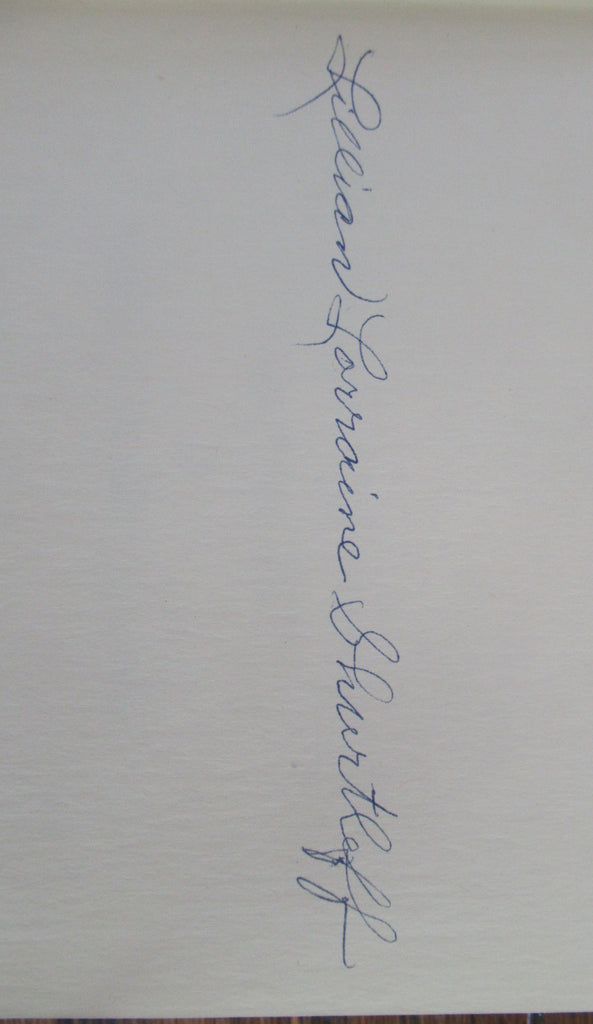 Lillian Lorraine Shurtleff